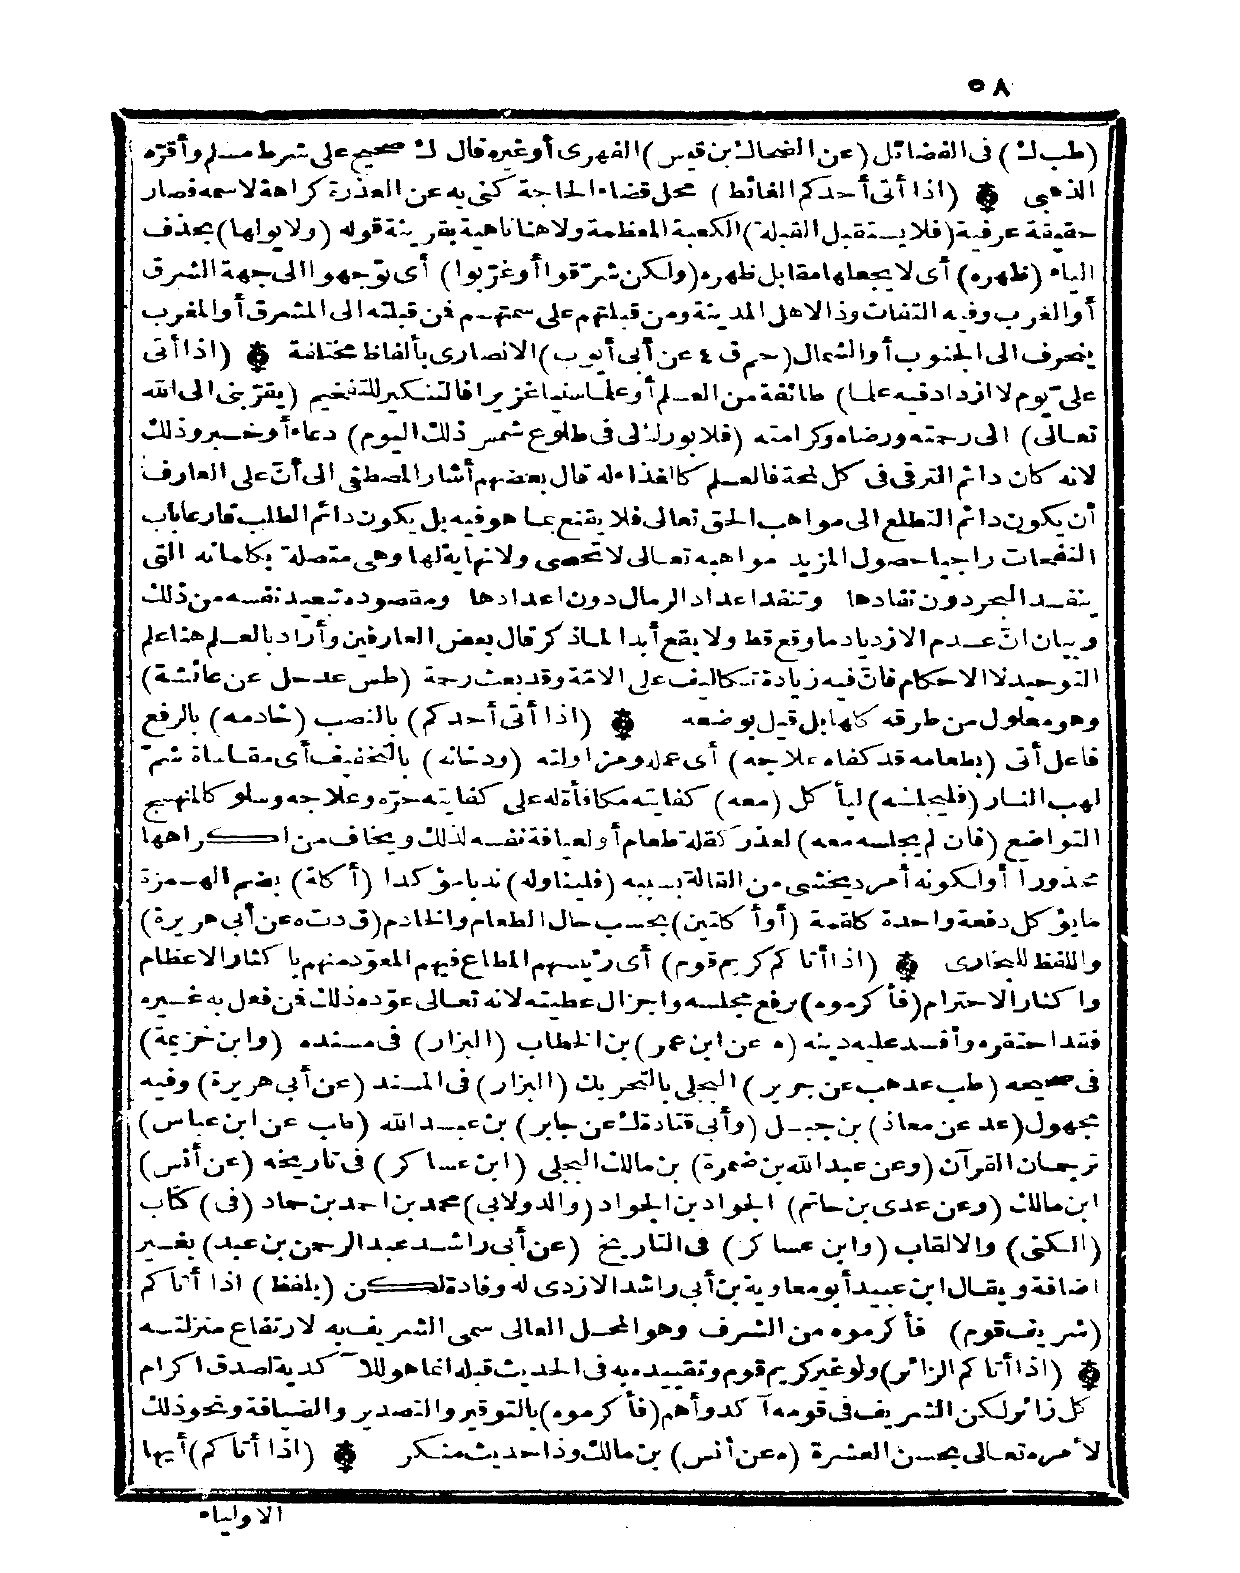 ٥٨
(طب ك) فى الفضائل (عن الضحاك بن قيس) الفهرى أو غيره قال ك صحيح على شرط مسلم وأقره
الذهبى (اذا أتى أحدكم الغائط) محل قضاء الحاجة كنى به عن العذرة كراهة لاسمه فصار
حقيقة عرفية (فلا يستقبل القبلة) الكعبة المعظمة ولا هنا ناهية بقرينة قوله (ولا يولها) بحذف
الياء (ظهره) أى لا يجعلها مقابل ظهره (ولكن شرّقوا أو غرّبوا) أى توجهوا الى جهة الشرق
أو الغرب وفيه التفات وذا لاهل المدينة ومن قبلتهم على سمتهم فمن قبلته الى المشرق أو المغرب
ينحرف الى الجنوب أو الشمال (حم ق ٤ عن أبى أيوب) الانصارى بألفاظ مختلفة (اذا أتى
علىّ يوم لا ازداد فيه علما) طائفة من العلم أو علما سنيا غزيرا فالتنكير للتفخيم (يقرّبنى الى الله
تعالى) الى رحمته ورضاه وكرامته (فلا بورك لى فى طلوع شمس ذلك اليوم) دعاء أو خبر وذلك
لانه كان دائم الترقى فى كل لمحة فالعلم كالغذاء له قال بعضهم أشار المصطفى الى أنّ على العارف
أن يكون دائم التطلع الى مواهب الحق تعالى فلا يقنع بما هو فيه بل يكون دائم الطلب قارعا باب
النفحات راجيا حصول المزيد مواهبه تعالى لا تحصى ولا نهاية لها وهى متصلة بكلماته التى
ينفد البحر دون نفادها وتنفد اعداد الرمال دون اعدادها ومقصوده تبعيد نفسه من ذلك
وبيان انّ عدم الازدياد ما وقع قط ولا يقع أبدا لما ذكر قال بعض العارفين وأراد بالعلم هنا علم
التوحيد لا الاحكام فانّ فيه زيادة تكاليف على الامّة وقد بعث رحمة (طس عد حل عن عائشة)
وهو معلول من طرقه كلها بل قيل بوضعه (اذا أتى أحدكم) بالنصب (خادمه) بالرفع
فاعل أتى (بطعامه قد كفاه علاجه) أى عمله ومزاولته (ودخانه) بالتخفيف أى مقاساة شمّ
لهب النار (فليجلسه) ليأكل (معه) كفايته مكافأة له على كفايته حرّه وعلاجه وسلوكا لمنهج
التواضع (فان لم يجلسه معه) لعذر كقلة طعام أو لعيافة نفسه لذلك ويخاف من اكراهها
محذورا أو لكونه أمرد يخشى من القالة بسببه (فليناوله) ندبا مؤكدا (أكلة) بضم الهمزة
ما يؤكل دفعة واحدة كلقمة (أو أكلتين) بحسب حال الطعام والخادم (ق د ت ه عن أبى هريرة)
واللفظ للبخارى (اذا أتاكم كريم قوم) أى رئيسهم المطاع فيهم المعوّد منهم باكثار الاعظام
واكثار الاحترام (فأكرموه) برفع مجلسه واجزال عطيته لانه تعالى عوّده ذلك فمن فعل به غيره
فقد احتقره وأفسد عليه دينه (ه عن ابن عمر) بن الخطاب (البزار) فى مسنده (وابن خزيمة)
فى صحيحه (طب عد هب عن جرير) البجلى بالتحريك (البزار) فى المسند (عن أبى هريرة) وفيه
مجهول (عد عن معاذ) بن جبل (وأبى قتادة ك عن جابر) بن عبد الله (طب عن ابن عباس)
ترجمان القرآن (وعن عبد الله بن ضمرة) بن مالك البجلى (ابن عساكر) فى تاريخه (عن أنس)
ابن مالك (وعن عدى بن حاتم) الجواد بن الجواد (والدولابى) محمد بن احمد بن حماد (فى) كتاب
(الكنى) والالقاب (وابن عساكر) فى التاريخ (عن أبى راشد عبد الرحمن بن عبد) بغير
اضافة ويقال ابن عبيد أبو معاوية بن أبى راشد الازدى له وفادة لكن (بلفظ) اذا أتاكم
(شريف قوم) فأكرموه من الشرف وهو المحل العالى سمى الشريف به لارتفاع منزلته
(اذا أتاكم الزائر) ولو غير كريم قوم وتقييده به فى الحديث قبله انما هو للآكدية لصدق اكرام
كل زائر لكن الشريف فى قومه آكد وأهم (فأكرموه) بالتوقير والتصدير والضيافة ونحو ذلك
لأمره تعالى بحسن العشرة (ه عن أنس) بن مالك وذا حديث منكر (اذا أتاكم) أيها
الاولياء